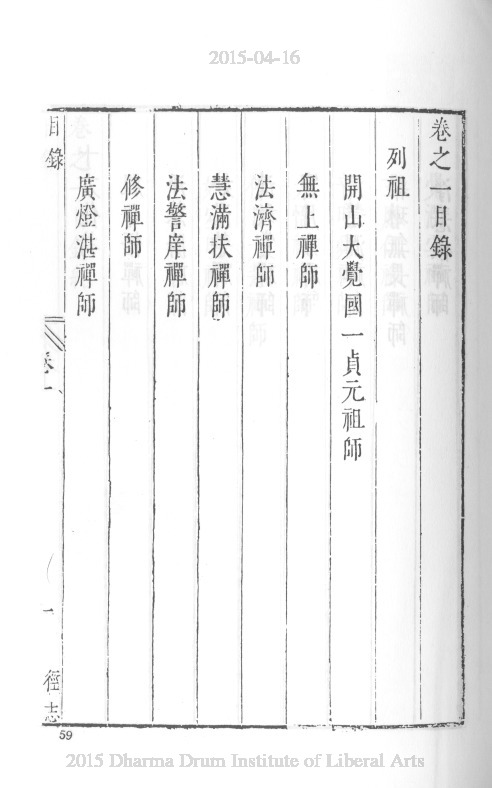 2015-04-16
卷之一目錄
列祖
開山大覺國一貞元祖師
無上禪師
法濟禪師
慧滿扶禪師
法警庠禪師
修禪師
廣燈湛禪師
目錄
卷一
一
徑志
59
2015 Dharma Drum Institute of Liberal Arts